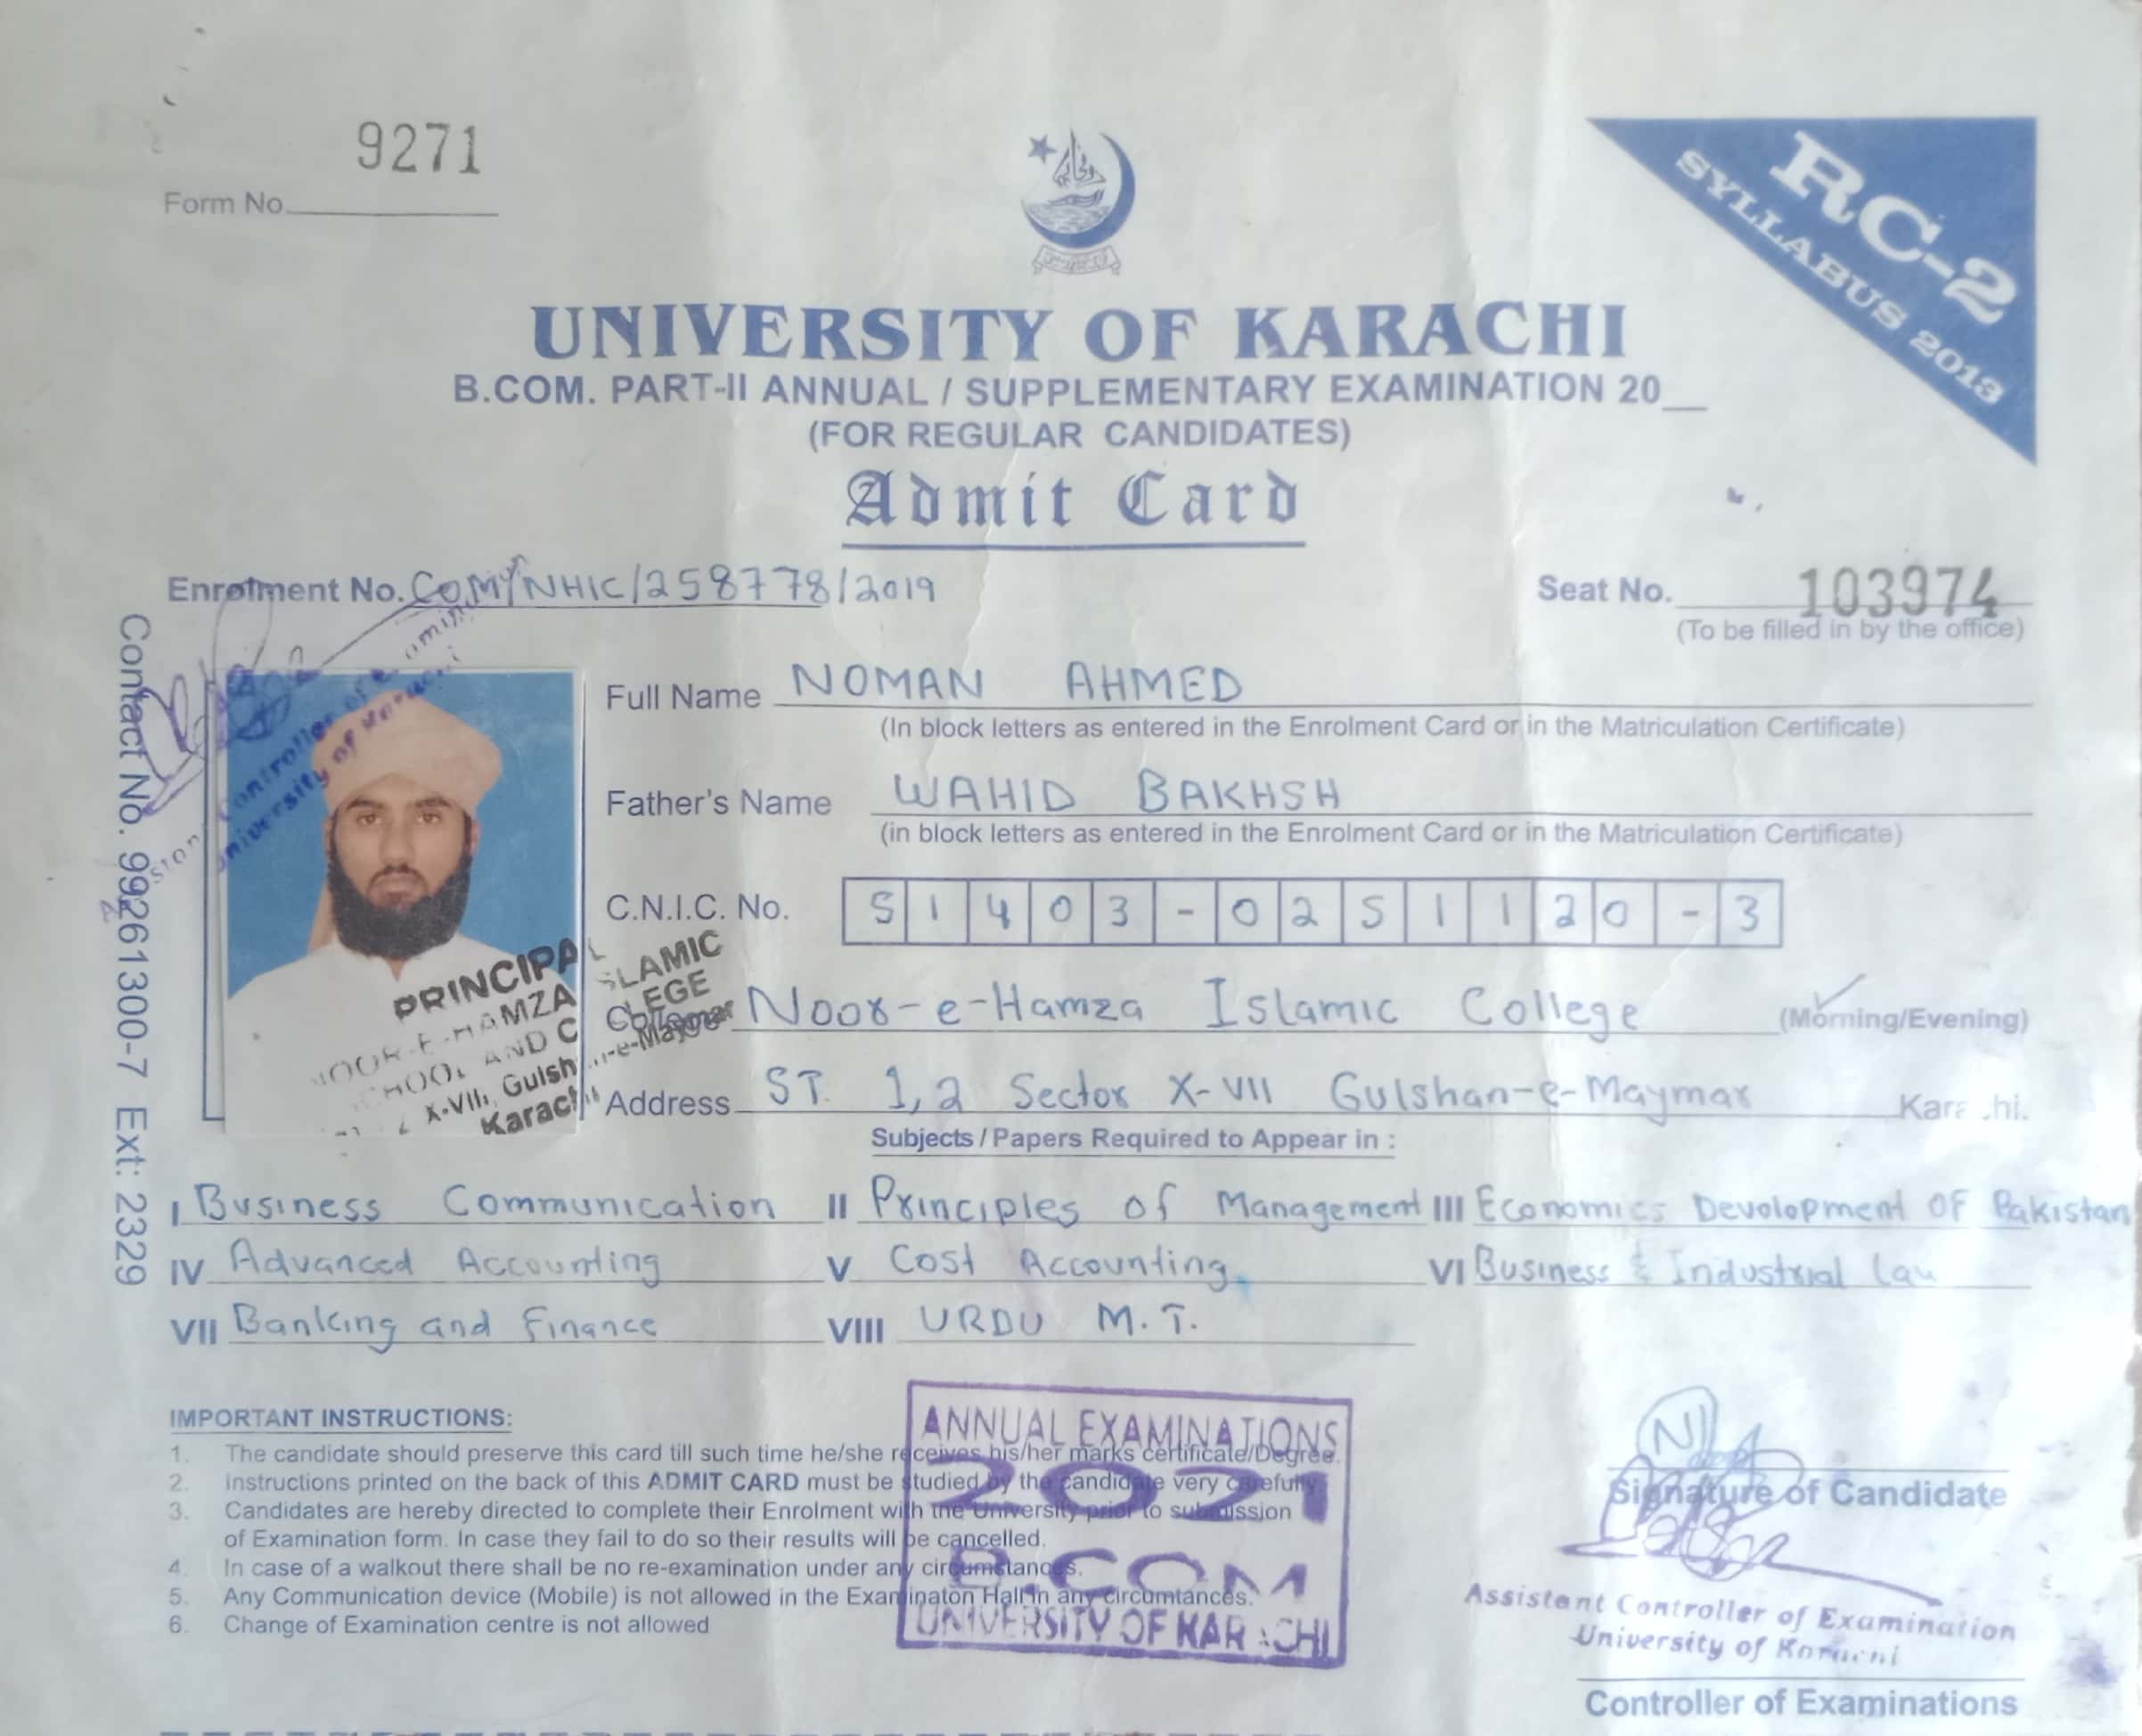 9271
Form No.
RC-2
SYLLABUS 2013
UNIVERSITY OF KARACHI
B.COM. PART-II ANNUAL / SUPPLEMENTARY EXAMINATION 20__
(FOR REGULAR CANDIDATES)
Admit Card
Enrolment No. COM/NHIC/258778/2019
Seat No. 103974
(To be filled in by the office)
Contact No. 99261300-7 Ext: 2329
Controller of
University of Karachi
Full Name NOMAN AHMED
(In block letters as entered in the Enrolment Card or in the Matriculation Certificate)
Father's Name WAHID BAKHSH
(in block letters as entered in the Enrolment Card or in the Matriculation Certificate)
C.N.I.C. No. 51403-0251120-3
PRINCIPAL
NOOR-E-HAMZA ISLAMIC
SCHOOL AND COLLEGE
X-VII, Gulshan-e-Maymar
Karachi
College Noor-e-Hamza Islamic College (Morning/Evening)
Address ST. 1,2 Sector X-VII Gulshan-e-Maymar Karachi.
Subjects / Papers Required to Appear in :
I Business Communication II Principles of Management III Economics Devolopment OF Pakistan
IV Advanced Accounting V Cost Accounting VI Business & Industrial Law
VII Banking and Finance VIII URDU M.T.
IMPORTANT INSTRUCTIONS:
1. The candidate should preserve this card till such time he/she receives his/her marks certificate/Degree.
2. Instructions printed on the back of this ADMIT CARD must be studied by the candidate very carefully
3. Candidates are hereby directed to complete their Enrolment with the University prior to submission
of Examination form. In case they fail to do so their results will be cancelled.
4. In case of a walkout there shall be no re-examination under any circumstances.
5. Any Communication device (Mobile) is not allowed in the Examinaton Hall in any circumtances.
6. Change of Examination centre is not allowed
ANNUAL EXAMINATIONS
2021
B.COM
UNIVERSITY OF KARACHI
Signature of Candidate
Assistant Controller of Examination
University of Karachi
Controller of Examinations